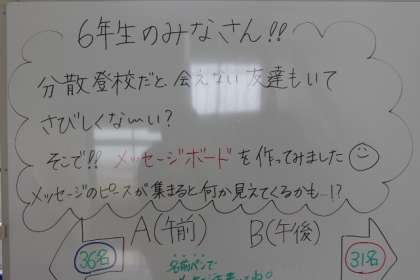 6年生のみなさん!!
分散登校だと会えない友達もいて
さびしくな〜い?
そこで!! メッセージボードを作ってみました
メッセージのピースが集まると何か見えてくるかも…!?
A(午前) B(午後)
36名 31名
名前ペンで